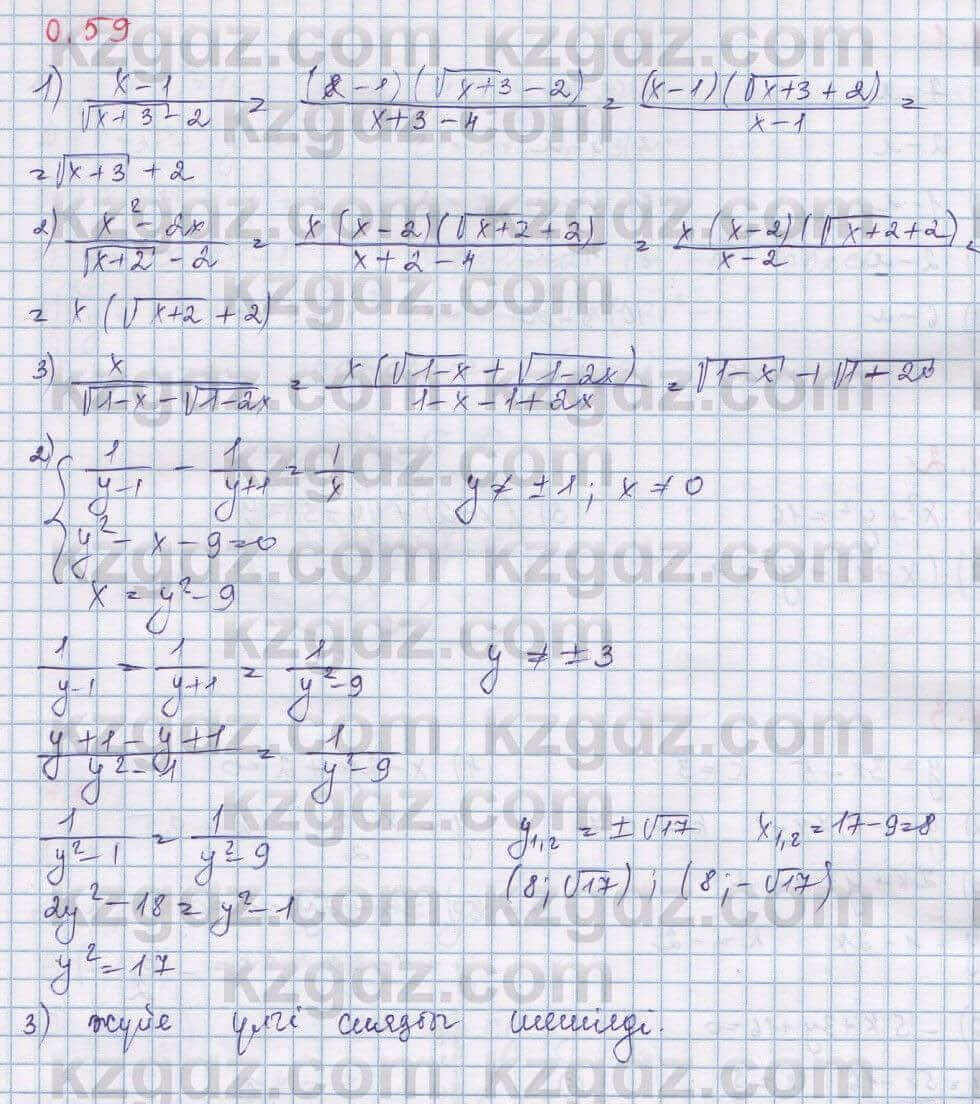 0.59
1) (x-1)/(√(x+3)-2) = ((x-1)(√(x+3)-2))/(x+3-4) = ((x-1)(√(x+3)+2))/(x-1) =
= √(x+3) + 2
2) (x²-2x)/(√(x+2)-2) = (x(x-2)(√(x+2)+2))/(x+2-4) = (x(x-2)(√(x+2)+2))/(x-2) =
= x(√(x+2)+2)
3) x/(√(1-x)-√(1-2x)) = (x(√(1-x)+√(1-2x)))/(1-x-1+2x) = √(1-x)+√(1-2x)
2) { 1/(y-1) - 1/(y+1) = 1/x y ≠ ±1; x ≠ 0
y²-x-9=0
x = y²-9
1/(y-1) - 1/(y+1) = 1/(y²-9) y ≠ ±3
(y+1-y+1)/(y²-1) = 1/(y²-9)
1/(y²-1) = 1/(y²-9) y₁,₂ = ±√17 x₁,₂ = 17-9=8
2y²-18 = y²-1 (8; √17); (8; -√17)
y² = 17
3) жүйе үлгі сияқты шешілді.
kzgdz.com